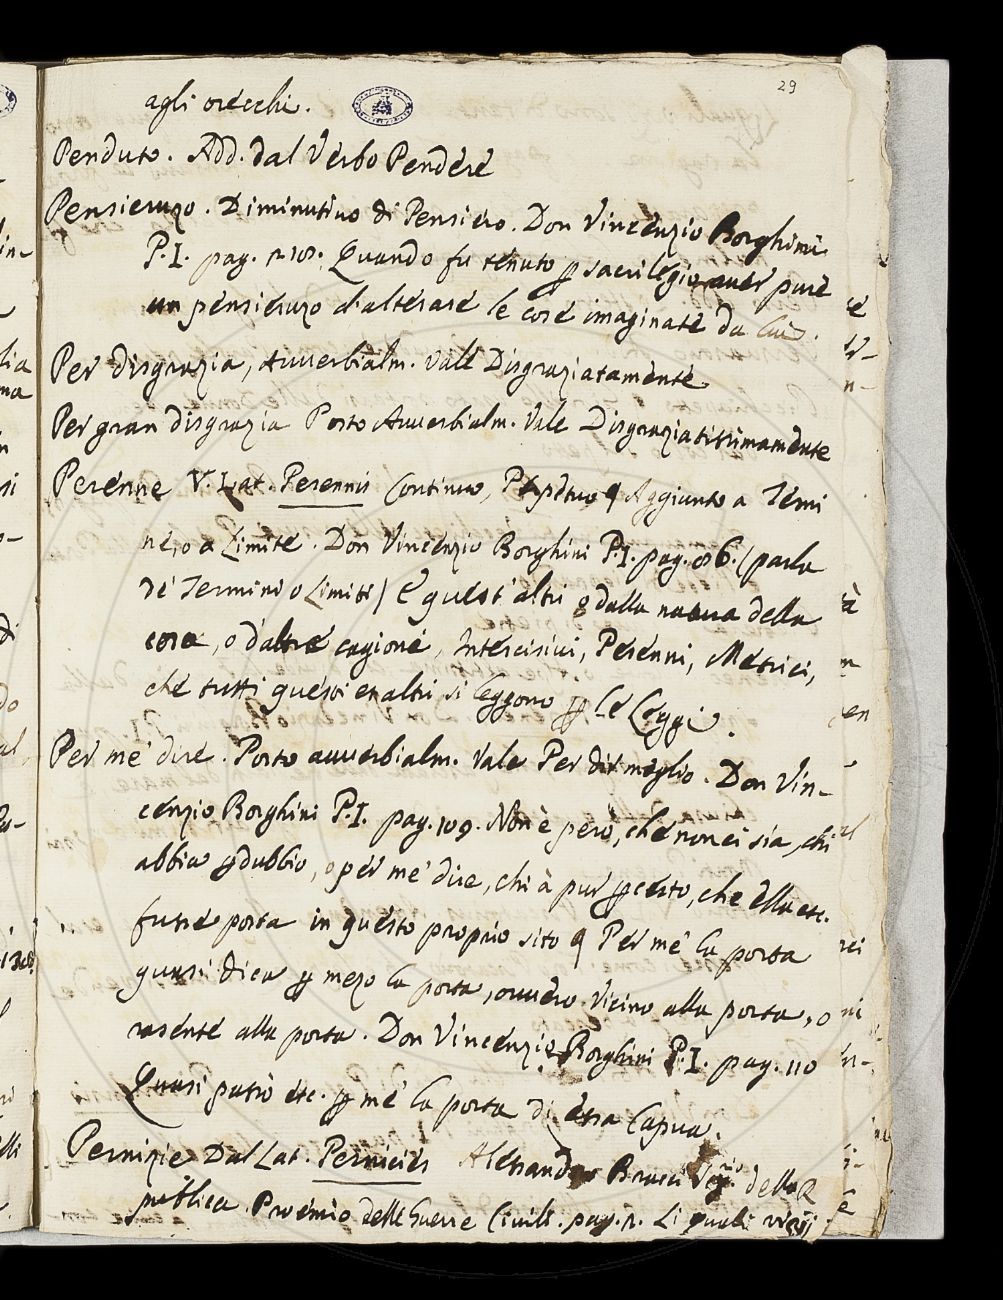 29
agli orecchi.
Penduto. Add. dal Verbo Pendere
Pensieruzo. Diminutivo di Pensiero. Don Vincenzio Borghini
P.I. pag. 218. Quando fu tenuto ꝑ sacrilegio auer pure
un pensieruzo d'alterare le cose imaginate da lui.
Per disgrazia, Avverbialm. Vale Disgraziatamente.
Per gran disgrazia Posto Avverbialm. Vale Disgraziatissimamente
Perenne V. Lat. Perennis Continuo, Perpetuo Aggiunto a Termi
ne, o a Limite. Don Vincenzio Borghini P.I. pag. 86. (parla
de' Termini o Limiti) E quest'altri o dalla natura della
cosa, o d'altre cagione, Intercisivi, Perenni, Metrici,
che tutti questi et altri si leggono ꝑ le Leggi.
Per me' dire. Posto avverbialm. Vale Per dir meglio. Don Vin-
cenzio Borghini P.I. pag. 109. Non è però, che non ci sia, chi
abbia ꝑ dubbio, o per me' dire, chi à pur ꝑ certo, che ella etc.
fusse posta in questo proprio sito Per me' la porta
quasi dica ꝑ mezo la porta, ovvero vicino alla porta, o
rasente alla porta. Don Vincenzio Borghini P.I. pag. 110
Quasi patio etc. ꝑ me' la porta di Capua.
Pernizie Dal Lat. Pernicies Alessandro Bracci della R
publica Proemio delle Guerre Civili. pag. 2. Li quali vizij